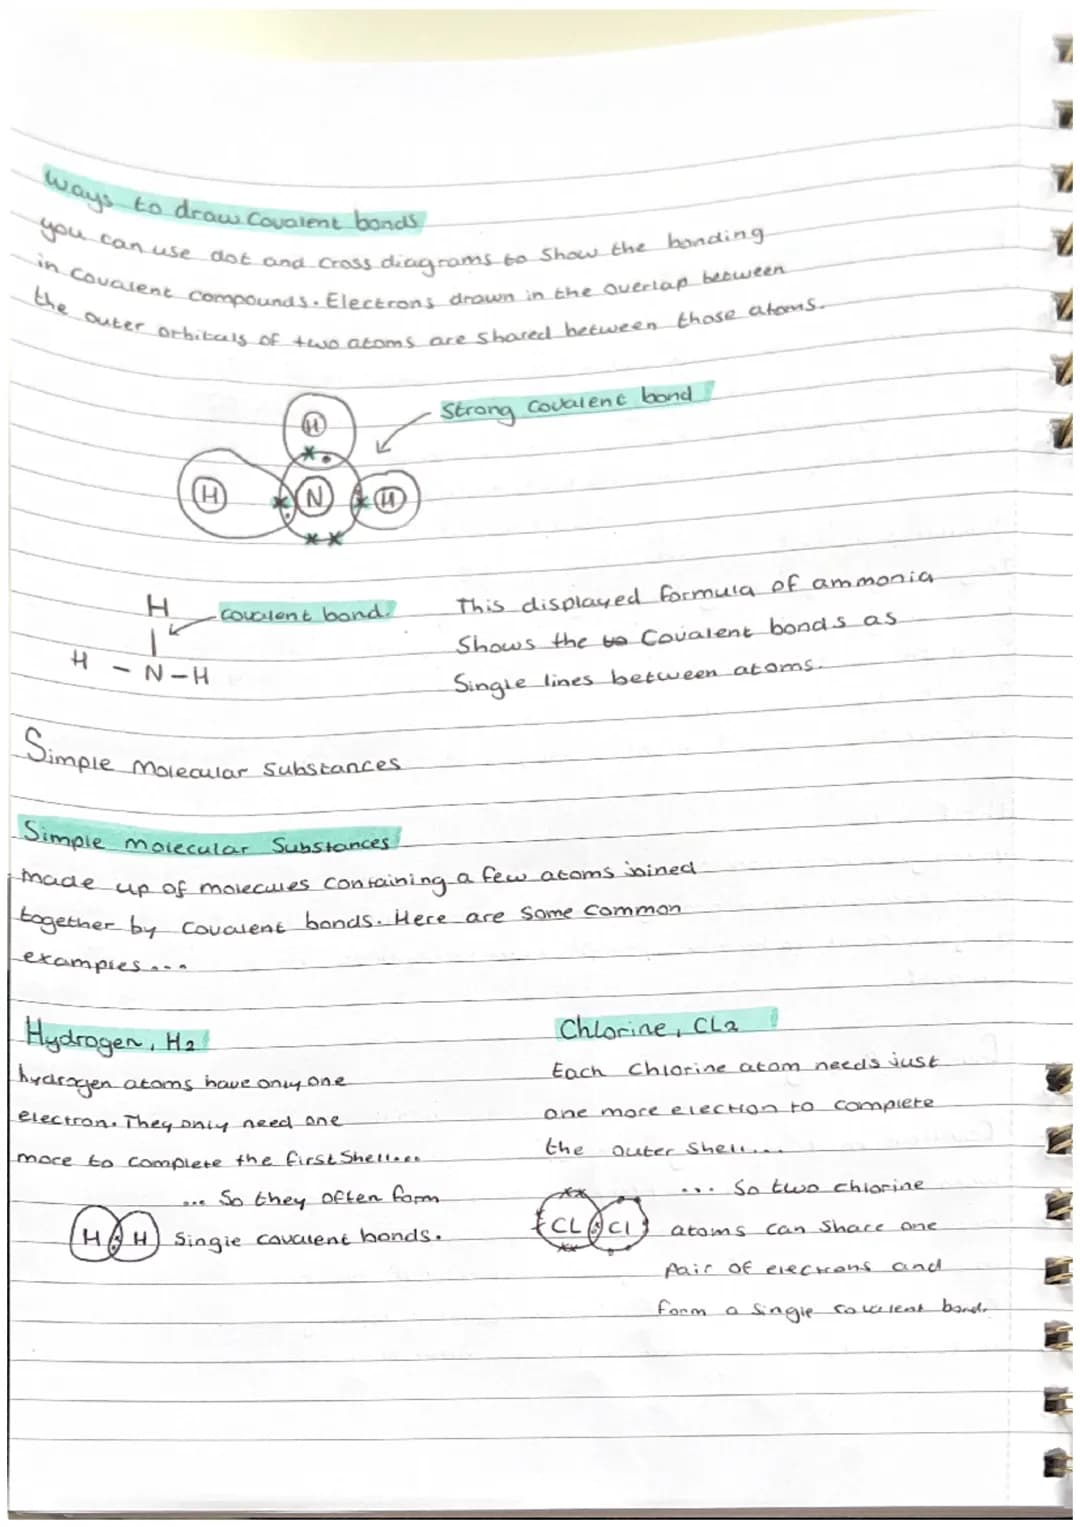 Ways to draw Covalent bonds
you can use dot and cross diagrams to show the bonding
in covalent compounds. Electrons drawn in the overlap between
the outer orbitals of two atoms are shared between those atoms.
Strong covalent bond
H
H N H
H
covalent bond.
H - N - H
This displayed formula of ammonia
Shows the to Covalent bonds as
Single lines between atoms.
Simple Molecular Substances
Simple molecular Substances
made up of molecules containing a few atoms joined
together by covalent bonds. Here are some common
examples...
Hydrogen, H2
hydrogen atoms have only one
electron. They only need one
more to complete the first Shell...
... So they often form
H H Single covalent bonds.
Chlorine, CL2
Each Chlorine atom needs just
one more electron to complete
the outer Shell...
... So two chlorine
CL Cl atoms can share one
pair of electrons and
form a single covalent bond.